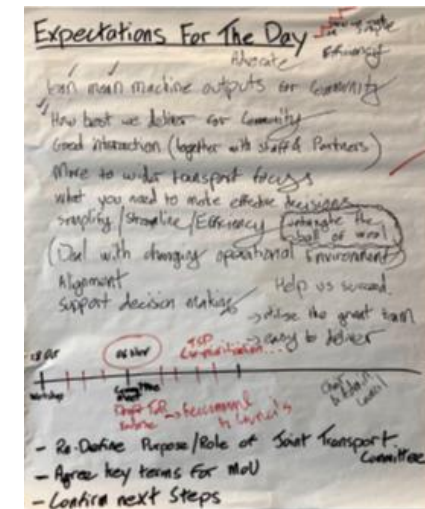 Expectations For The Day
Efficiency
Advocate
lean mean machine outputs for Community
How best we deliver for Community
Good interaction (together with staff & Partners)
More to wider transport focus
what you need to make effective decisions
simplify/Streamline/Efficiency untangle the ball of wool
(Deal with changing operational Environment)
Alignment
Help us succeed
support decision making
→ utilise the great team
→ easy to deliver
06 Nov
Workshop
→ Recommend to Councils
- Re-Define Purpose/Role of Joint Transport Committee
- Agree key terms for MoU
- Confirm next Steps